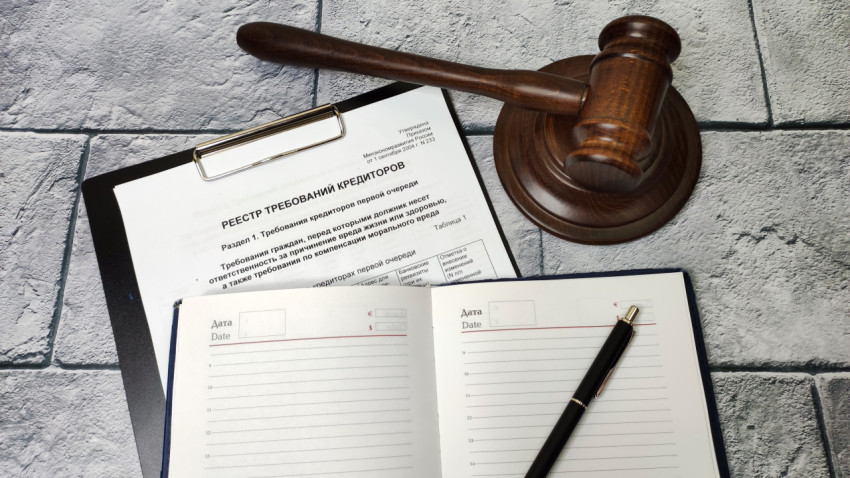 Утверждена
Приказом
Минэкономразвития России
от 1 сентября 2004 г. N 233
РЕЕСТР ТРЕБОВАНИЙ КРЕДИТОРОВ
Раздел 1. Требования кредиторов первой очереди
Требования граждан, перед которыми должник несет
ответственность за причинение вреда жизни или здоровью,
а также требования по компенсации морального вреда
Таблица 1
кредиторах первой очереди
Банковские
реквизиты
Отметка о
внесении
изменений
(N п/п
Дата
Date
€
$
Дата
Date